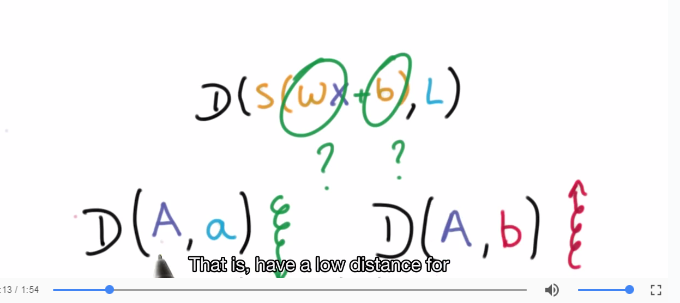 D(S(WX+b),L)
? ?
D(A,a) D(A,b)
That is, have a low distance for
:13 / 1:54